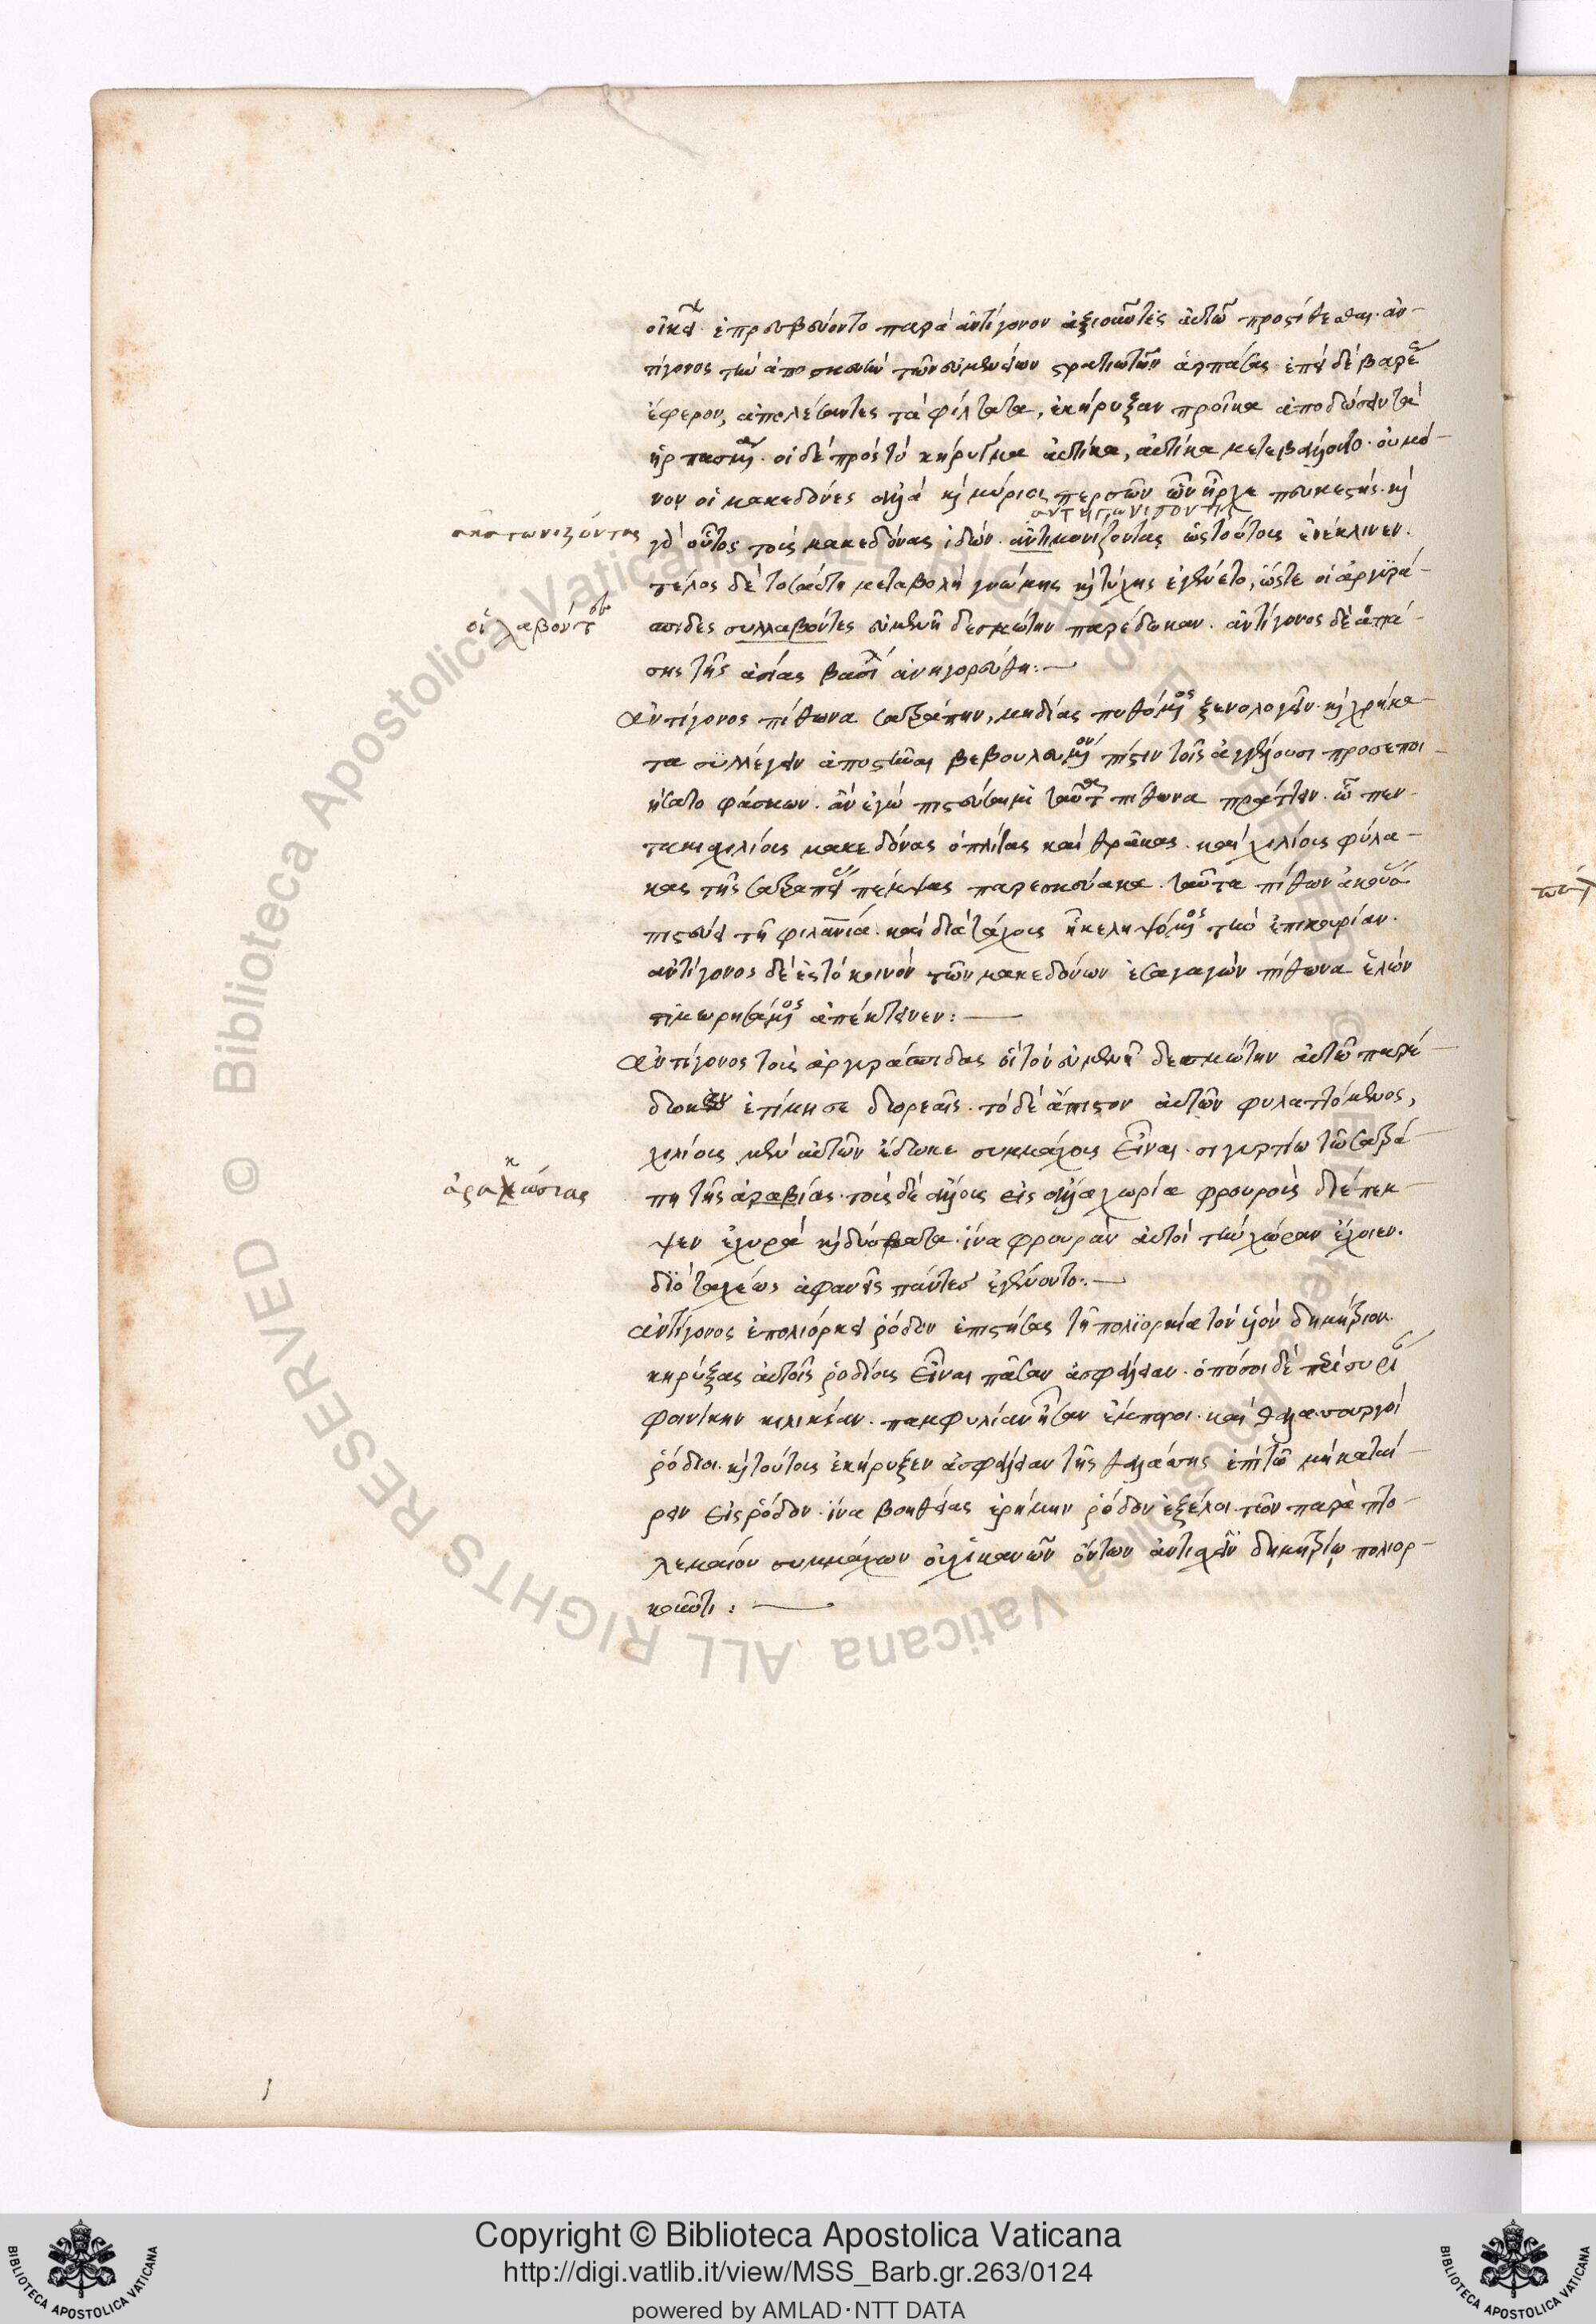 οἰκεῖ. ἐπρεσβεύοντο παρὰ ἀντίγονον ἀξιοῦντες αὐτῶ προστίθεσθαι. ἀν-
τίγονος τὴν ἀποσκευὴν τῶν εὐμενείων στρατιωτῶν ἁρπάσας ἐπεὶ δὲ βαρέως
ἔφερον, ἀπολέσαντες τὰ φίλτατα, ἐκήρυξαν προῖκα ἀποδώσειν τὰ
ἡρπασμένα. οἱ δὲ πρὸς τὸ κήρυγμα αὐτίκα, αὐτίκα μετεβάλλοντο. οὐ μό-
νον οἱ μακεδόνες ἀλλὰ καὶ μύριοι περσῶν ὧν ἦρχε πευκέστης. καὶ
γὰρ οὗτος τοὺς μακεδόνας ἰδὼν. ἀντικονίζοντας ὡς τούτοις ἐνέκλινεν.
τέλος δὲ τοσαύτη μεταβολὴ γνώμης καὶ τύχης ἐγένετο, ὥστε οἱ ἀργυρά-
οἱ λαβόντες
ασπιδες συλλαβόντες εὐμενῆ δεσμώτην παρέδωκαν. ἀντίγονος δὲ ἁπά-
σης τῆς ἀσίας βασιλεὺς ἀνηγορεύθη:—
Ἀντίγονος πίθωνα σατράπην, μηδίας πυθόμενος ξενολογεῖν. καὶ χρήμα-
τα συλλέγειν ἀποστῆναι βεβουλευμένον πίστιν τοῖς ἀγγέλλουσι προσεποι-
ήσατο φάσκων. ἂν ἐγὼ πιστεύσαιμι ταῦτα πίθωνα πράττειν. ὧ πεν-
τακισχιλίους μακεδόνας ὁπλίτας καὶ θρᾶκας. καὶ χιλίους φύλα-
κας τῆς σατραπείας πέμψας παρεσκεύακα. ταῦτα πίθων ἀκούσας
πιστεύει τῆ φιλανθρωπία. καὶ διὰ τάχους ἧκε ληψόμενος τὴν ἐπικουρίαν.
ἀντίγονος δὲ ἐς τὸ κοινὸν τῶν μακεδόνων ἐσαγαγὼν πίθωνα ἑλὼν
τιμωρησάμενος ἀπέκτεινεν:——
Ἀντίγονος τοὺς ἀργυράσπιδας οἳ τὸν εὐμενῆ δεσμώτην αὐτῶ παρέ-
δωκαν ἐτίμησε δωρεαῖς. τὸ δὲ ἄπιστον αὐτῶν φυλαττόμενος,
χιλίους μὲν αὐτῶν ἔδωκε συμμάχους εἶναι. σιγυρτίω τῶ σατρά-
πη τῆς ἀραβίας. τοὺς δὲ ἄλλους εἰς ἄλλα χωρία φρουροὺς διέπεμ-
ψεν ἐχυρὰ καὶ δύσβατα. ἵνα φρουρὰν αὐτοὶ τὴν χώραν ἔχοιεν.
διὸ ταχέως ἀφανεῖς πάντες ἐγένοντο:—
Ἀντίγονος ἐπολιόρκει ῥόδον ἐπιστήσας τῆ πολιορκία τὸν υἱὸν δημήτριον.
κηρύξας αὐτοῖς ῥοδίοις εἶναι πᾶσαν ἀσφάλειαν. ὁπόσοι δὲ περὶ συρίαν
φοινίκην κιλικίαν. παμφυλίαν ἦσαν ἔμποροι. καὶ θαλασσουργοὶ
ῥόδιοι. καὶ τούτοις ἐκήρυξεν ἀσφάλειαν τῆς θαλάσσης ἐπὶ τῶ μὴ καταί-
ρειν εἰς ῥόδον. ἵνα βοηθείας ἐρήμην ῥόδον ἐξέλοι. τῶν παρὰ πτο-
λεμαίου συμμάχων οὐχ ἱκανῶν ὄντων ἀντισχεῖν δημητρίω πολιορ-
κοῦντι:——
Copyright © Biblioteca Apostolica Vaticana
http://digi.vatlib.it/view/MSS_Barb.gr.263/0124
powered by AMLAD·NTT DATA